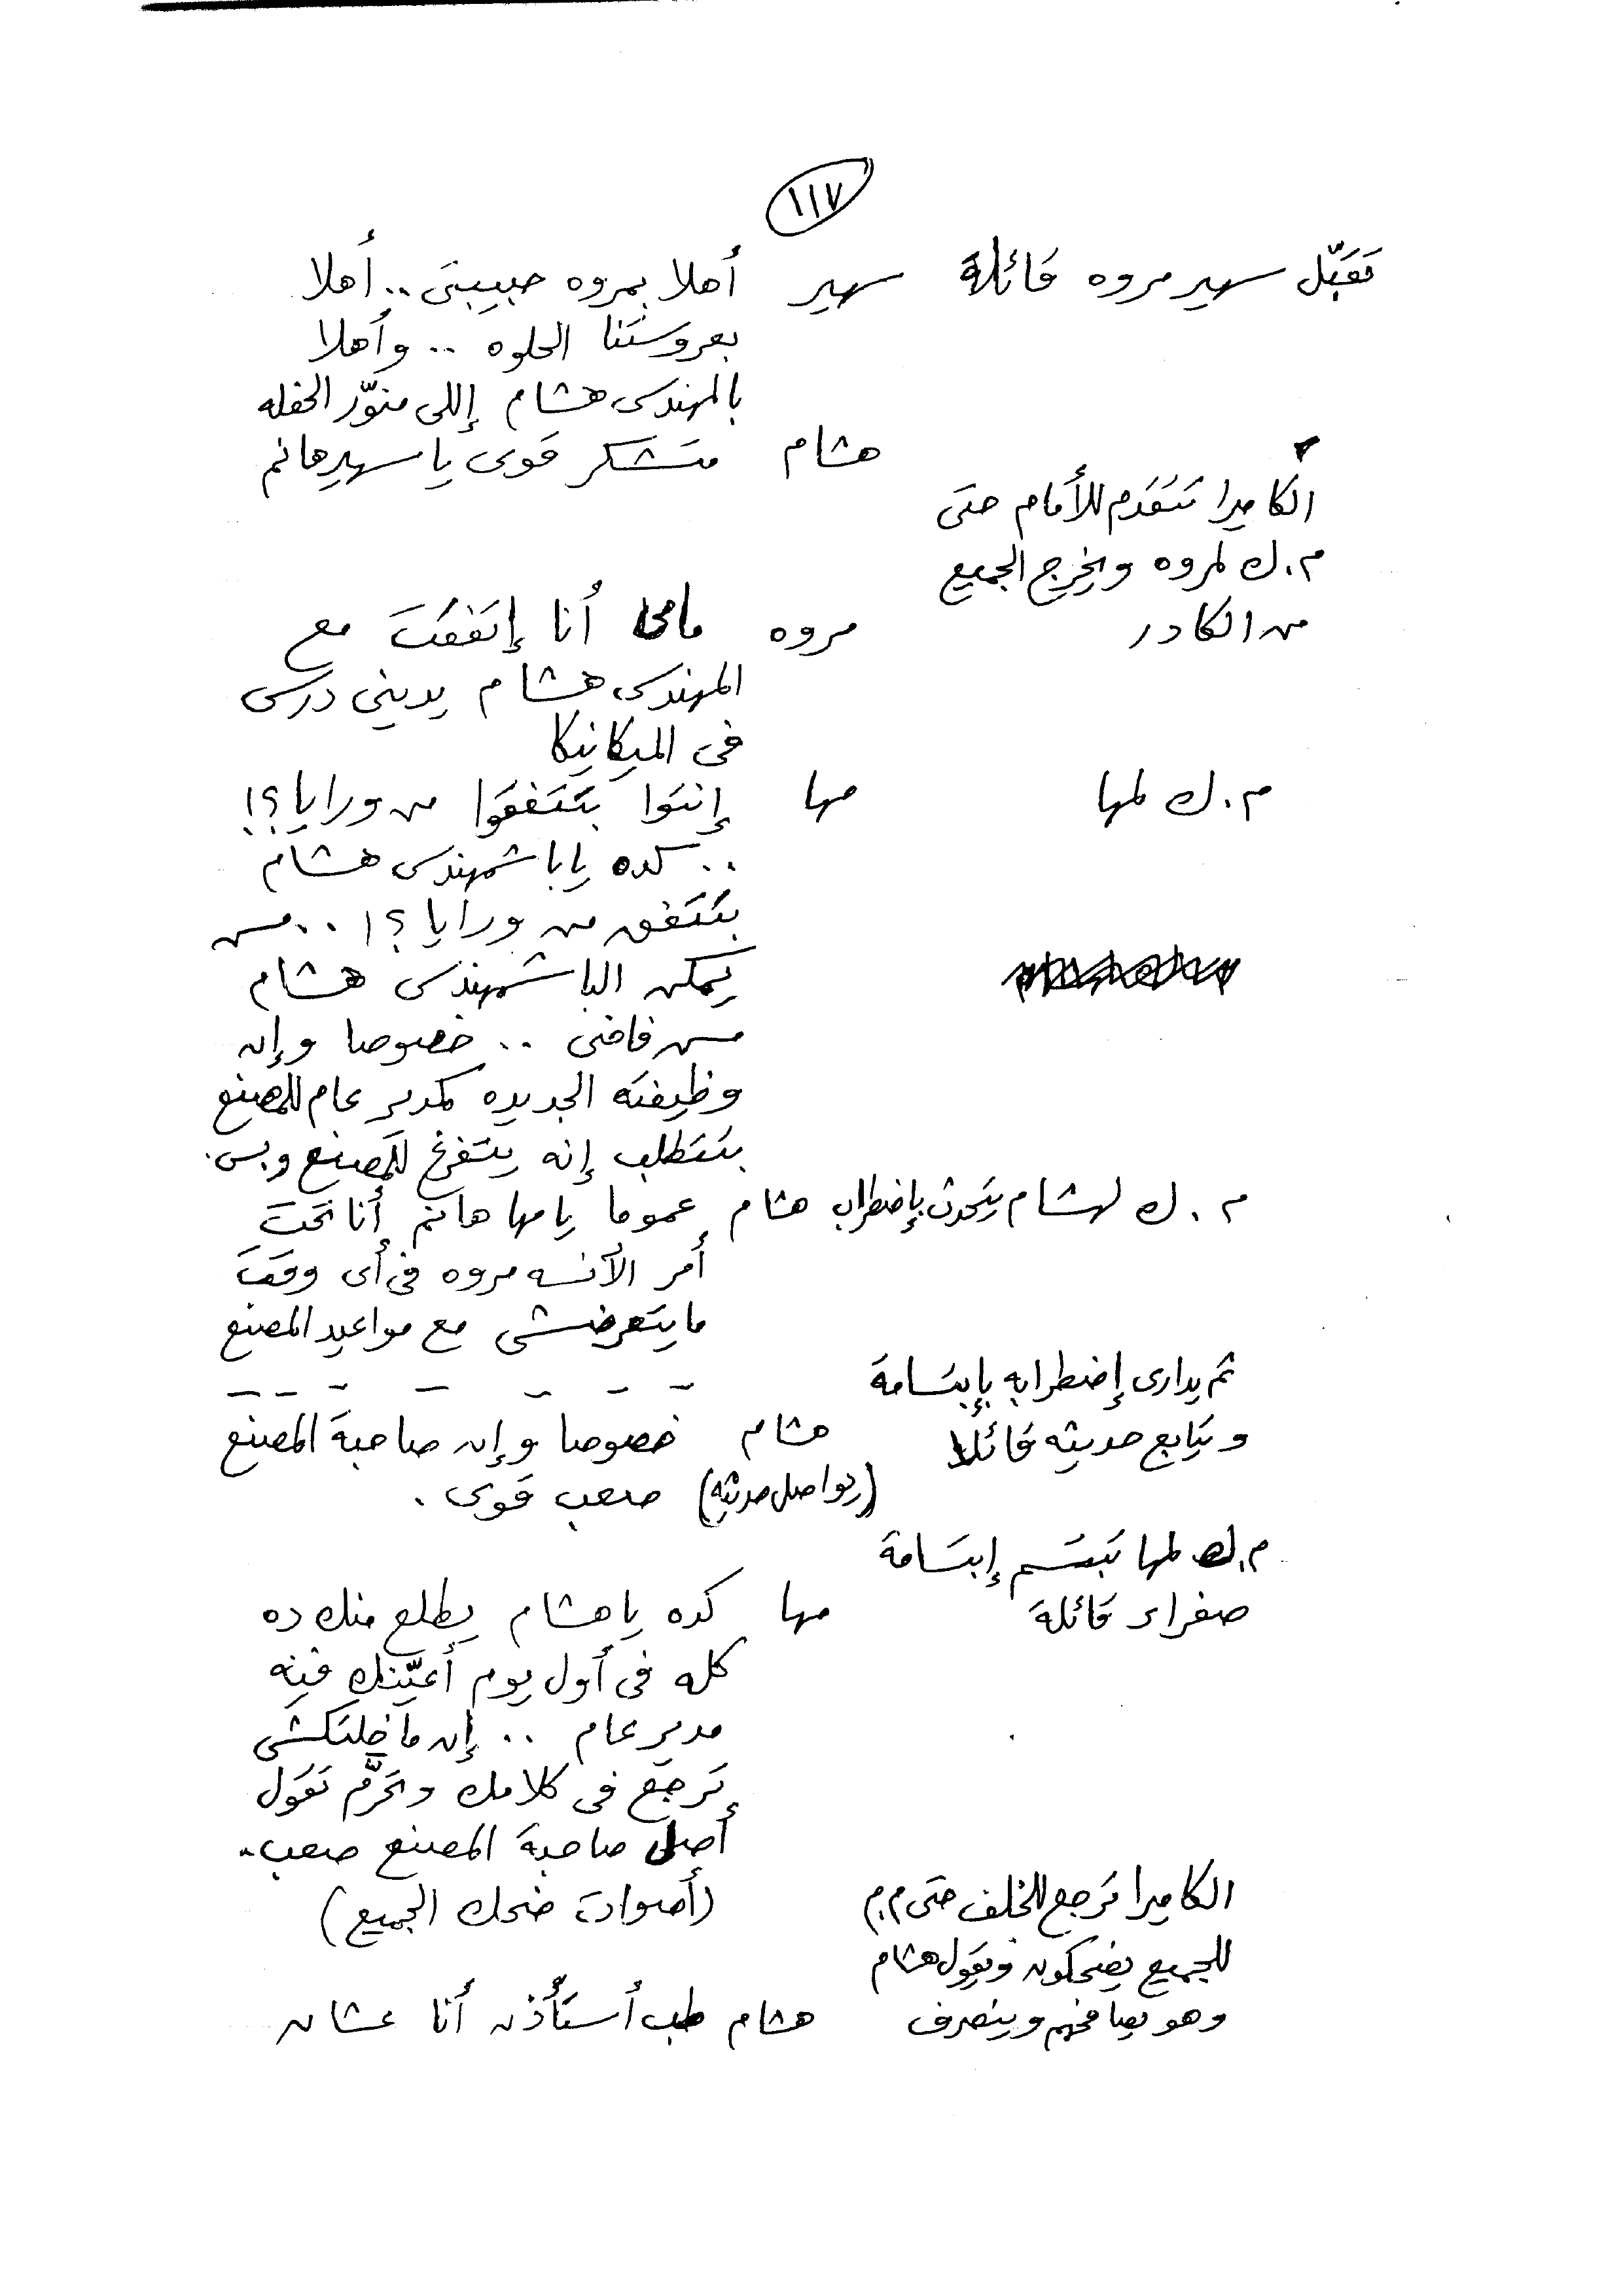 ١١٧
تقبّل سهير مروه قائلة سهير أهلا بمروه حبيبتى .. أهلا
بعروستنا الحلوه .. وأهلا
بالمهندس هشام إللى منوّر الحفله
هشام متشكر قوى يا سهير هانم
الكاميرا تتقدم للأمام حتى
م.ك لمروه ويخرج الجميع
من الكادر مروه مامى أنا إتفقت مع
المهندس هشام يدينى درس
فى الميكانيكا
م.ك لمها مها إنتوا بتتفقوا من ورايا؟!
.. كده يا باشمهندس هشام
بتتفق من ورايا؟! .. مش
يمكن الباشمهندس هشام
مش فاضى .. خصوصا وإن
وظيفته الجديده كمدير عام للمصنع
بتتطلب إنه يتفرغ للمصنع وبس.
م.ك لهشام يتحدث بإضطراب هشام عموما يا مها هانم أنا تحت
أمر الآنسه مروه فى أى وقت
ما يتعرضشى مع مواعيد المصنع
ثم يدارى إضطرابه بإبتسامة
ويتابع حديثه قائلا هشام خصوصا وإن صاحبة المصنع
(يواصل حديثه) صعب قوى .
م.ك لمها تبتسم إبتسامة
صفراء قائلة مها كده يا هشام يطلع منك ده
كله فى أول يوم أعيّنك فيه
مدير عام .. إن ما خليتكشى
ترجع فى كلامك وتحرّم تقول
أصل صاحبة المصنع صعب.
الكاميرا ترجع للخلف حتى م.م (أصوات ضحك الجميع)
للجميع يضحكون ويقول هشام
وهو يصافحهم وينصرف هشام طب أستأذن أنا عشان